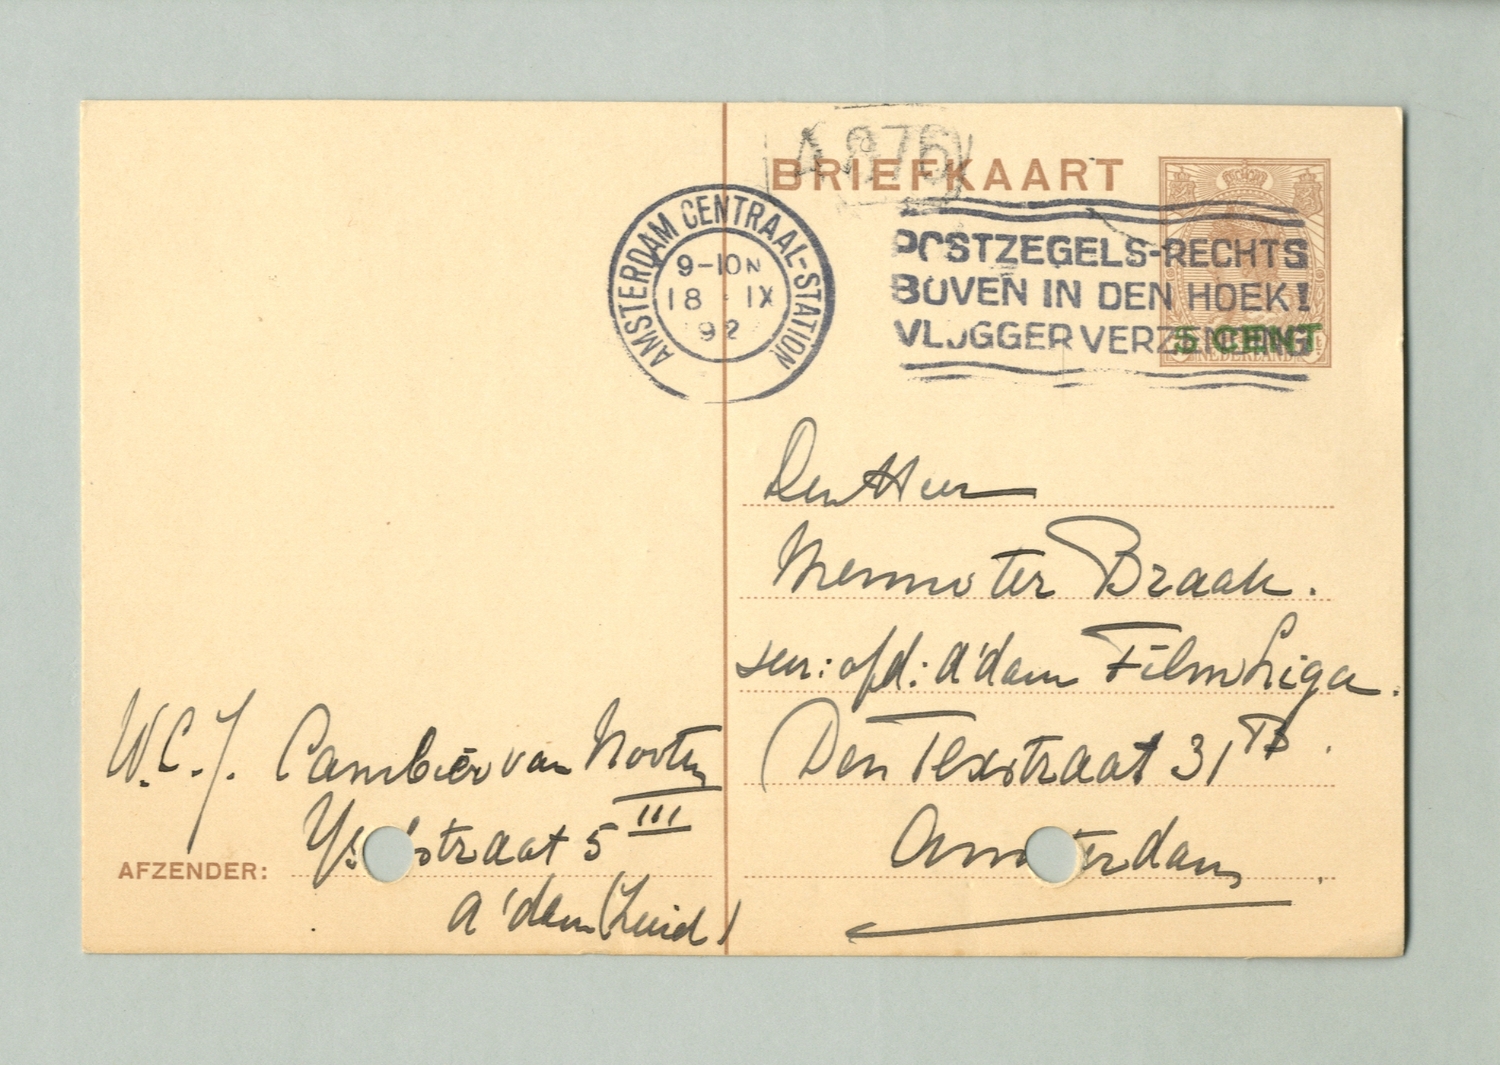 BRIEFKAART
AMSTERDAM CENTRAAL-STATION
9-10 N
18 IX
92
POSTZEGELS-RECHTS
BOVEN IN DEN HOEK!
VLUGGER VERZENDING
5 CENT
NEDERLAND
Den Heer
Menno ter Braak.
secr: afd: A'dam FilmLiga.
Den Texstraat 31
Amsterdam
W.C.J. Cambier van Nooten
straat 5 III
AFZENDER:
A'dam (Zuid)